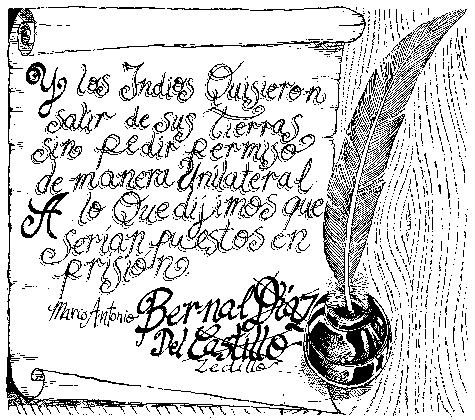 Y los Indios Quisieron
salir de sus tierras
sin pedir permiso
de manera Unilateral
A lo Que dijimos que
serían puestos en
prisión.
Marco Antonio Bernal Díaz
Del Castillo
Zedillo